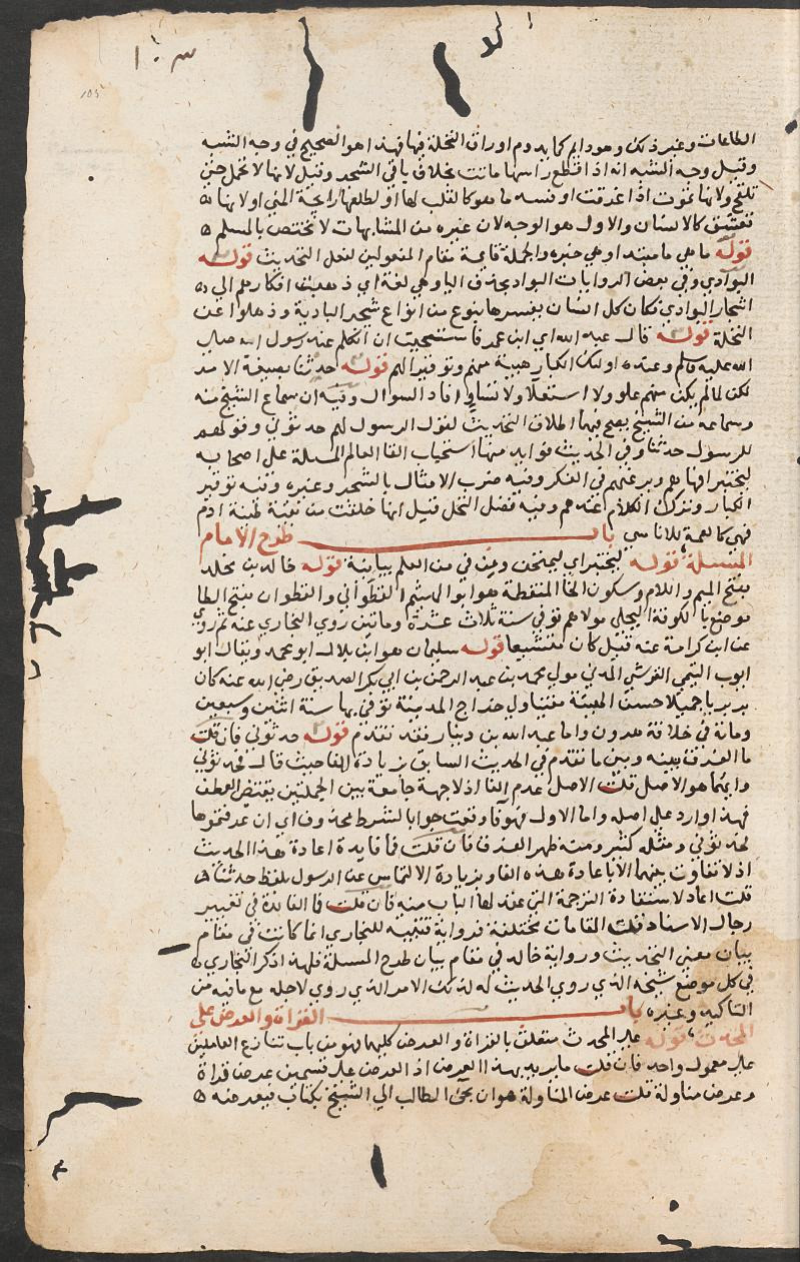 ١٠٣
105
الطاعات وغير ذلك وهو دايم كما يدوم اوراق النخلة فيها فهذا هو الصحيح في وجه الشبه
وقيل وجه الشبه انه اذا قطع راسها ماتت بخلاف باقي الشجر وقيل لانها لا تحمل حتى
تلقح ولانها تموت اذا غرقت او فسد ما هو كالقلب لها او لطلعها رايحة المني او لانها
تعشق كالانسان والاول هو الوجه لان غيره من المشابهات لا تختص بالمسلم
قوله ما هي ما مبتدا وهي خبره والجملة قايمة مقام المفعولين لفعل التحديث قوله
البوادي وفي بعض الروايات البواد بحذف اليا وهي لغة اي ذهبت افكارهم الي
اشجار البوادي فكان كل انسان يفسرها بنوع من انواع شجر البادية وذهلوا عن
النخلة قوله قال عبد الله اي ابن عمر فاستحييت ان اتكلم عند رسول الله صلي
الله عليه وسلم وعنده اولئك الكبار هيبة منهم وتوقيرا لهم قوله حدثنا بصيغة الامر
لكن لما لم يكن منهم علو ولا استعلا ولا تساو افاد السوال وفيه ان سماع الشيخ منه
وسماعه من الشيخ يصح فيهما اطلاق التحديث لقول الرسول لهم حدثوني وقولهم
للرسول حدثنا وفي الحديث فوايد منها استحباب القا العالم المسلة على اصحابه
ليختبر افهامهم ويرغبهم في الفكر وفيه ضرب الامثال بالشجر وغيره وفيه توقير
الكبار وترك الكلام عندهم وفيه فضل النخل قيل انها خلقت من بقية طينة ادم
فهي كالعمة للاناسي باب طرح الامام
المسلة قوله ليختبر اي ليمتحن ومن في من العلم بيانية قوله خالد بن مخلد
بفتح الميم واللام وسكون الخا المنقطة هو ابو الهيثم القطواني والقطوان بفتح الطا
موضع بالكوفة البجلي مولاهم توفي سنة ثلاث عشرة وماتين روي البخاري عنه ثم روي
عن ابن كرامة عنه قيل كان متشيعا قوله سليمان هو ابن بلال ابو محمد ويقال ابو
ايوب التيمي القرشي المدني مولي محمد بن عبد الرحمن بن ابي بكر الصديق رضي الله عنه كان
بربريا جميلا حسن الهيئة مفتيا ولي خراج المدينة توفي بها سنة اثنين وسبعين
ومائة في خلافة هرون واما عبد الله بن دينار فقد تقدم قوله حدثوني فان قلت
ما الفرق بينه وبين ما تقدم في الحديث السابق بزيادة الفا حيث قال فحدثوني
وايهما هو الاصل قلت الاصل عدم الفا اذ لا جهة جامعة بين الجملتين يقتضي العطف
فهذا وارد علي اصله واما الاول فهو فا وقعت جوابا لشرط محذوف اي ان عرفتموها
فحدثوني ومثله كثير ومنه ظهر الفرق فان قلت فما فايدة اعادة هذا الحديث
اذ لا تفاوت بينهما الا باعادة هذه الفا وبزيادة الالتماس عن الرسول بلفظ حدثنا
قلت اعاد لاستفادة الترجمة التي عقد لها الباب منه فان قلت فما الفائدة في تغيير
رجال الاسناد قلت المقامات مختلفة فرواية قتيبة للبخاري انما كانت في مقام
بيان معني التحديث ورواية خالد في مقام بيان طرح المسلة فلهذا ذكر البخاري
في كل موضع شيخه الذي روي الحديث له لذلك الامر الذي روي لاجله مع ما فيه من
التاكيد وغيره باب القراة والعرض علي
المحدث قوله علي المحدث متعلق بالقراة والعرض كليهما فهو من باب تنازع العاملين
علي معمول واحد فان قلت ما يريد بهذا العرض اذ العرض علي قسمين عرض قراة
وعرض مناولة قلت عرض المناولة هو ان يجئ الطالب الي الشيخ بكتاب فيعرضه